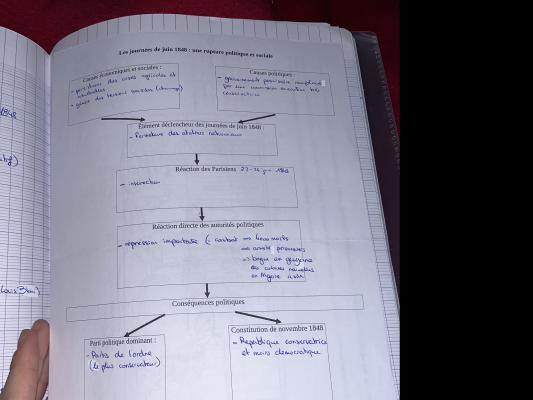 1848
Les journées de juin 1848 : une rupture politique et sociale
Causes économiques et sociales :
- des crises agricoles et
industrielles
- des tensions sociales (chômage)
Causes politiques :
- gouvernement provisoire remplacé
par une commission exécutive très
conservatrice
Elément déclencheur des journées de juin 1848 :
- Fermeture des ateliers nationaux
Réaction des Parisiens 23-26 juin 1848
- insurrection
Réaction directe des autorités politiques
- répression importante ( : → 4000 morts
→ prisonniers
→ bagne en
des colonies nouvelles
en Algérie
Louis
Conséquences politiques
Parti politique dominant :
- Partis de l'ordre
(le plus conservateur)
Constitution de novembre 1848
- République conservatrice
et moins démocratique